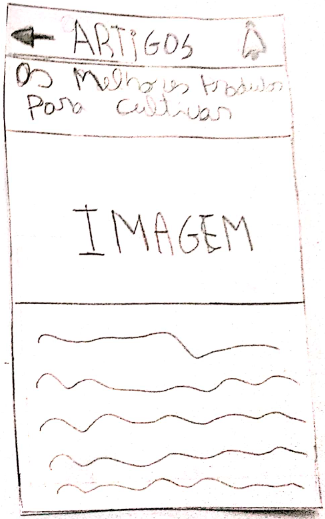 ARTIGOS
Os Melhores produtos
Para cultivar
IMAGEM